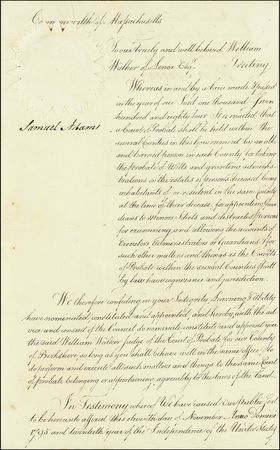 Commonwealth of Massachusetts
To our trusty and well beloved William
Walker of Lenox Esqr. Greeting
Whereas in and by a law made & passed
in the year of our Lord one thousand seven
hundred and eighty four It is enacted that
a Court of Probate shall be held within the
Samuel Adams
several Counties in this Government by an able
and learned person in each County for taking
the probate of Wills and granting administ
trations on the estates of persons deceased being
inhabitants of or resident in the same County
at the time of their decease, for appointing Guar
dians to Minors Idiots and distracted persons
for examining and allowing the accounts of
Executors Administrators or Guardians & for
such other matters and things as the Courts
of Probate within the several Counties shall
by law have cognizance and jurisdiction.
We therefore confiding in your Integrity Learning & Ability
have nominated, constituted and appointed, and hereby with the ad
vice and consent of the Council do nominate constitute and appoint you
the said William Walker Judge of the Court of Probate for our County
of Berkshire so long as you shall behave well in the same office. To
do perform and execute all such matters and things to the same Court
of probate belonging or appertaining agreeably to the laws of the Land.
In Testimony whereof We have caused Our Public Seal
to be hereunto affixed this eleventh day of November Anno Domini
1795 and twentieth year of the Independence of the United States